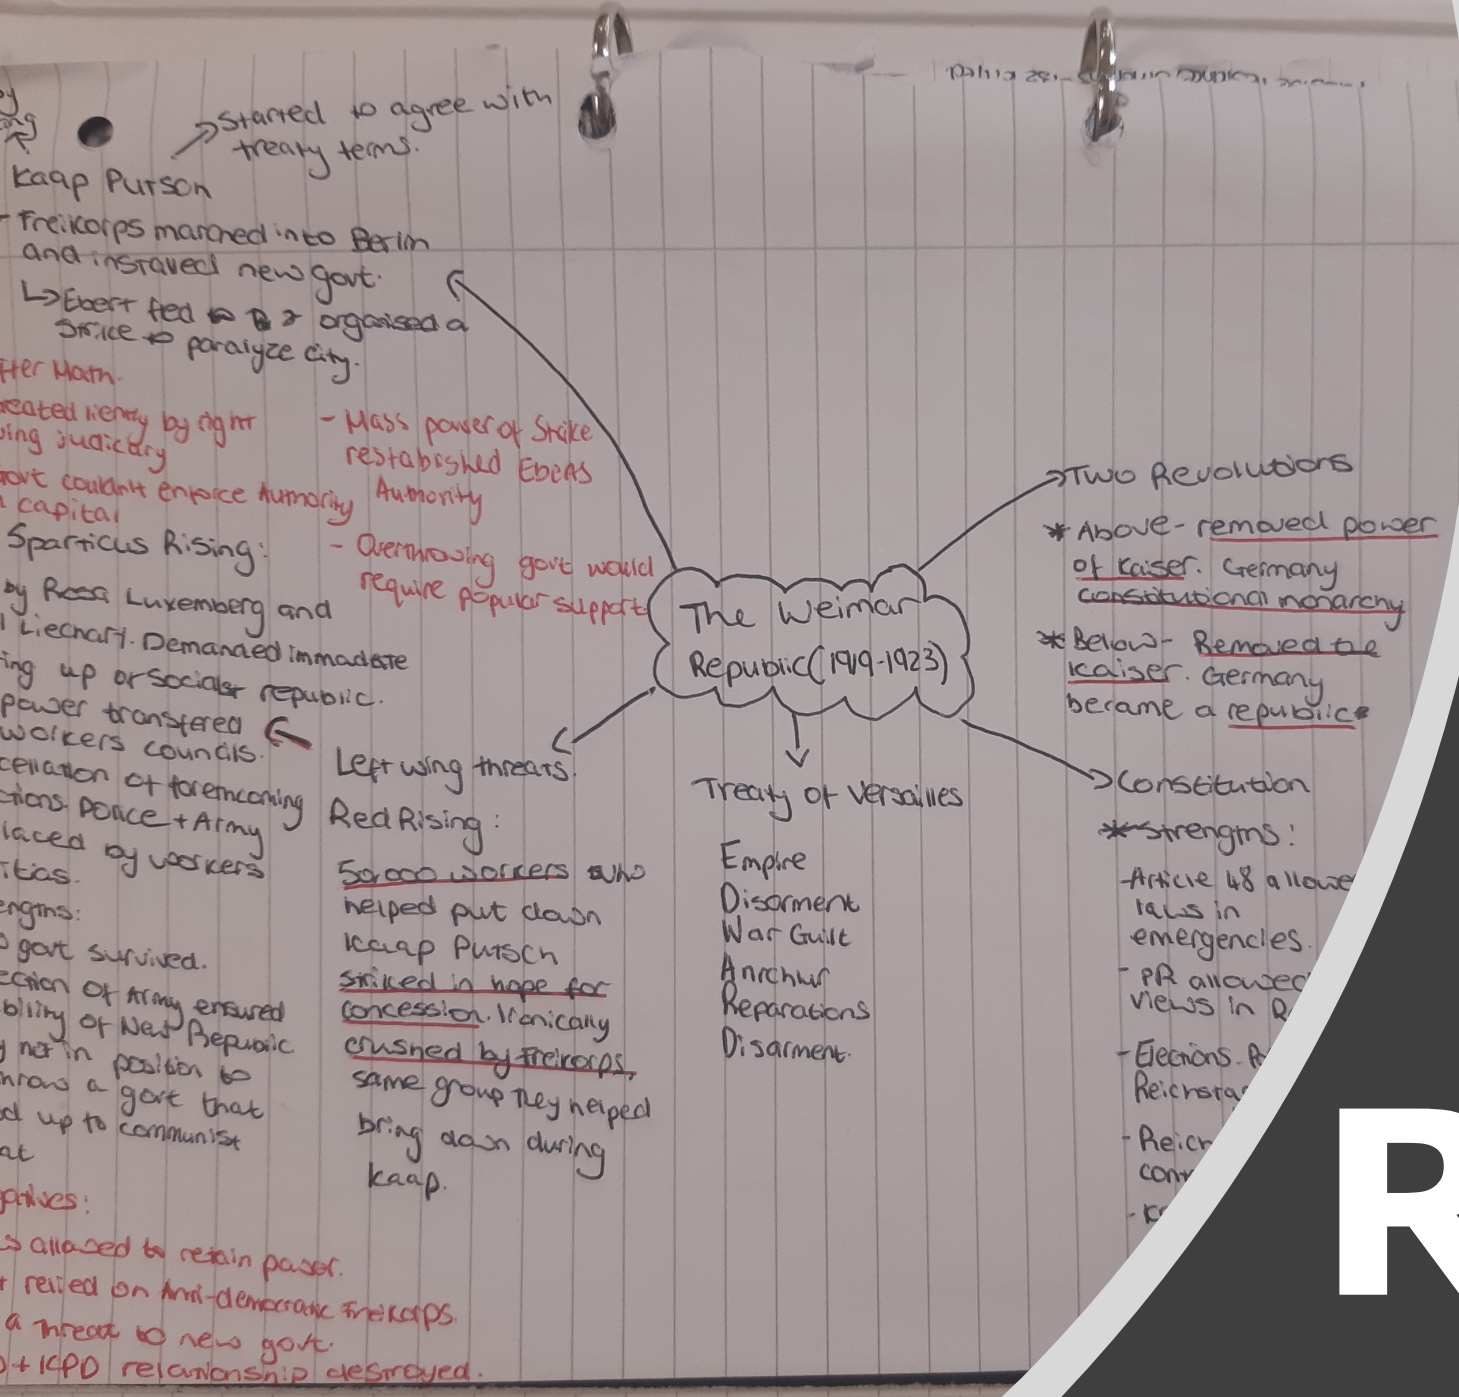 Started to agree with
treaty terms.
Kaap Putson
- Freikorps marched into Berlin
and installed new govt.
↳ Ebert fled to & organised a
strike to paralyze city.
fter Math.
reated liently by right
wing judicary
govt couldn't enforce Authority
capital
- Mass power of Strike
restablished Eberts
Authority
- Overthrowing govt would
require popular support
Sparticus Rising:
by Rosa Luxemberg and
Liechart. Demanded immadate
ing up of Socialst republic.
power transfered
workers councils.
cellation of foremcoming
ctions. Police + Army
laced by workers
itias.
engths:
govt survived.
ection of Army ensured
bility of New Republic
y not in position to
hrow a govt that
d up to communist
at
gatives:
s allowed to retain power.
relied on Anti-democratic Freikorps.
a threat to new govt.
+ KPD relationship destroyed.
The Weimar
Republic (1919-1923)
Left wing threats.
Red Rising:
50,000 workers who
helped put down
Kaap Putsch
striked in hope for
concession. Ironically
crushed by Freikorps,
same group they helped
bring down during
Kaap.
Treaty of Versailles
Empire
Disarment
War Guilt
Reparations
Disarment.
Two Revolutions
* Above - removed power
of Kaiser. Germany
constitutional monarchy
* Below - Removed the
Kaiser. Germany
became a republic
Constitution
* Strengths:
- Article 48 allowe
laws in
emergencies.
- PR allowed
views in R
- Elections. P
Reichsta
- Reich
con
- K
R